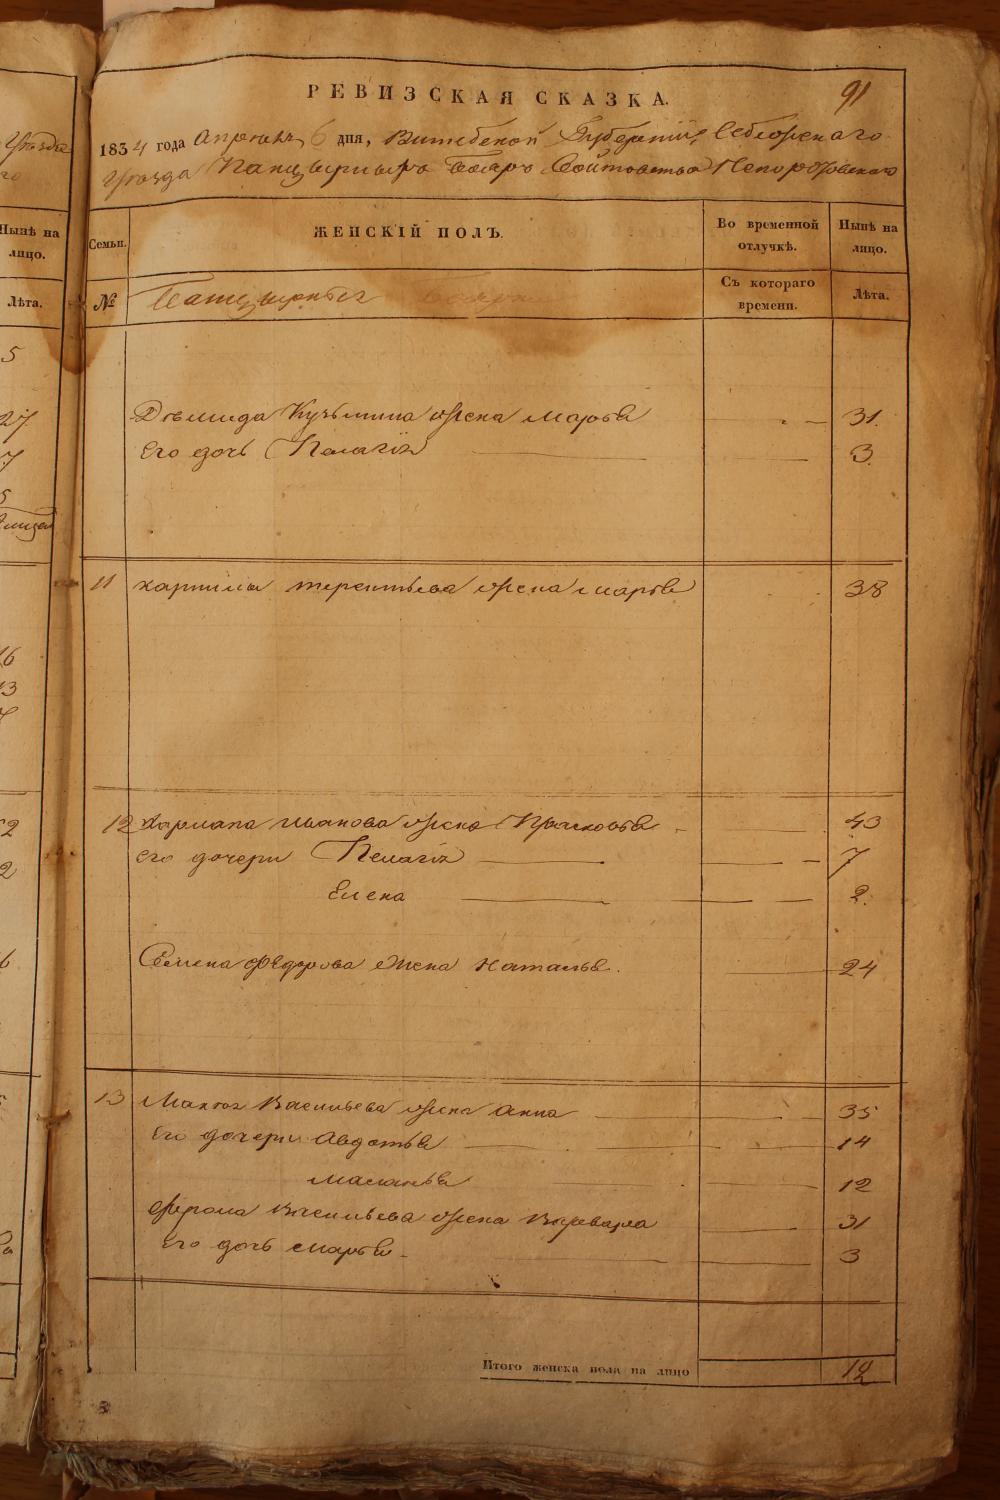 РЕВИЗСКАЯ СКАЗКА.
91
1834 года Апреля 6 дня, Витебской Губерніи, Себежскаго
Уезда Панцырныхъ Бояръ Войтовства Непоротовскаго
Уезда
Ныпѣ на лицо.
Лѣта.
Семьи.
ЖЕНСКІЙ ПОЛЪ.
Во временной отлучкѣ.
Ныпѣ на лицо.
№
Панцырныя Бояра
Съ котораго времени.
Лѣта.
5
27
7
Демида Кузьмина жена марья 31.
Его дочь Пелагія 3.
11 карпила терентьева жена марья 38
16
13
12 Хармана иванова жена Прасковья 43
его дочери Пелагія 7
Елена 2.
Семена Федорова жена Наталья. 24
13 Василъева жена Анна 35
Его дочери Авдотья 14
маланья 12
Василъева жена Варвара 31
Его дочь марья 3
Итого женска пола на лицо 12